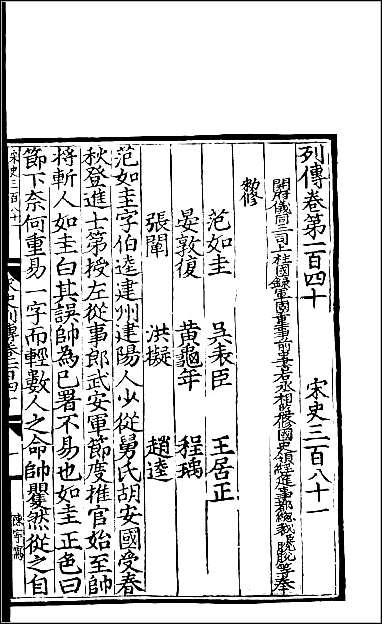 列傳卷第一百四十　宋史三百八十一
開府儀同三司上柱國錄軍國重事前中書右丞相監修國史領經筵事都總裁脫脫等奉
勅修
范如圭　吳表臣　王居正
晏敦復　黃龜年　程瑀
張闡　洪擬　趙逵
范如圭字伯達建州建陽人少從舅氏胡安國受春
秋登進士第授左從事郎武安軍節度推官始至帥
將斬人如圭白其誤帥為已署不易也如圭正色曰
節下奈何重易一字而輕數人之命帥矍然從之自
宋史三百八十一
宋史列傳卷一百四十
一